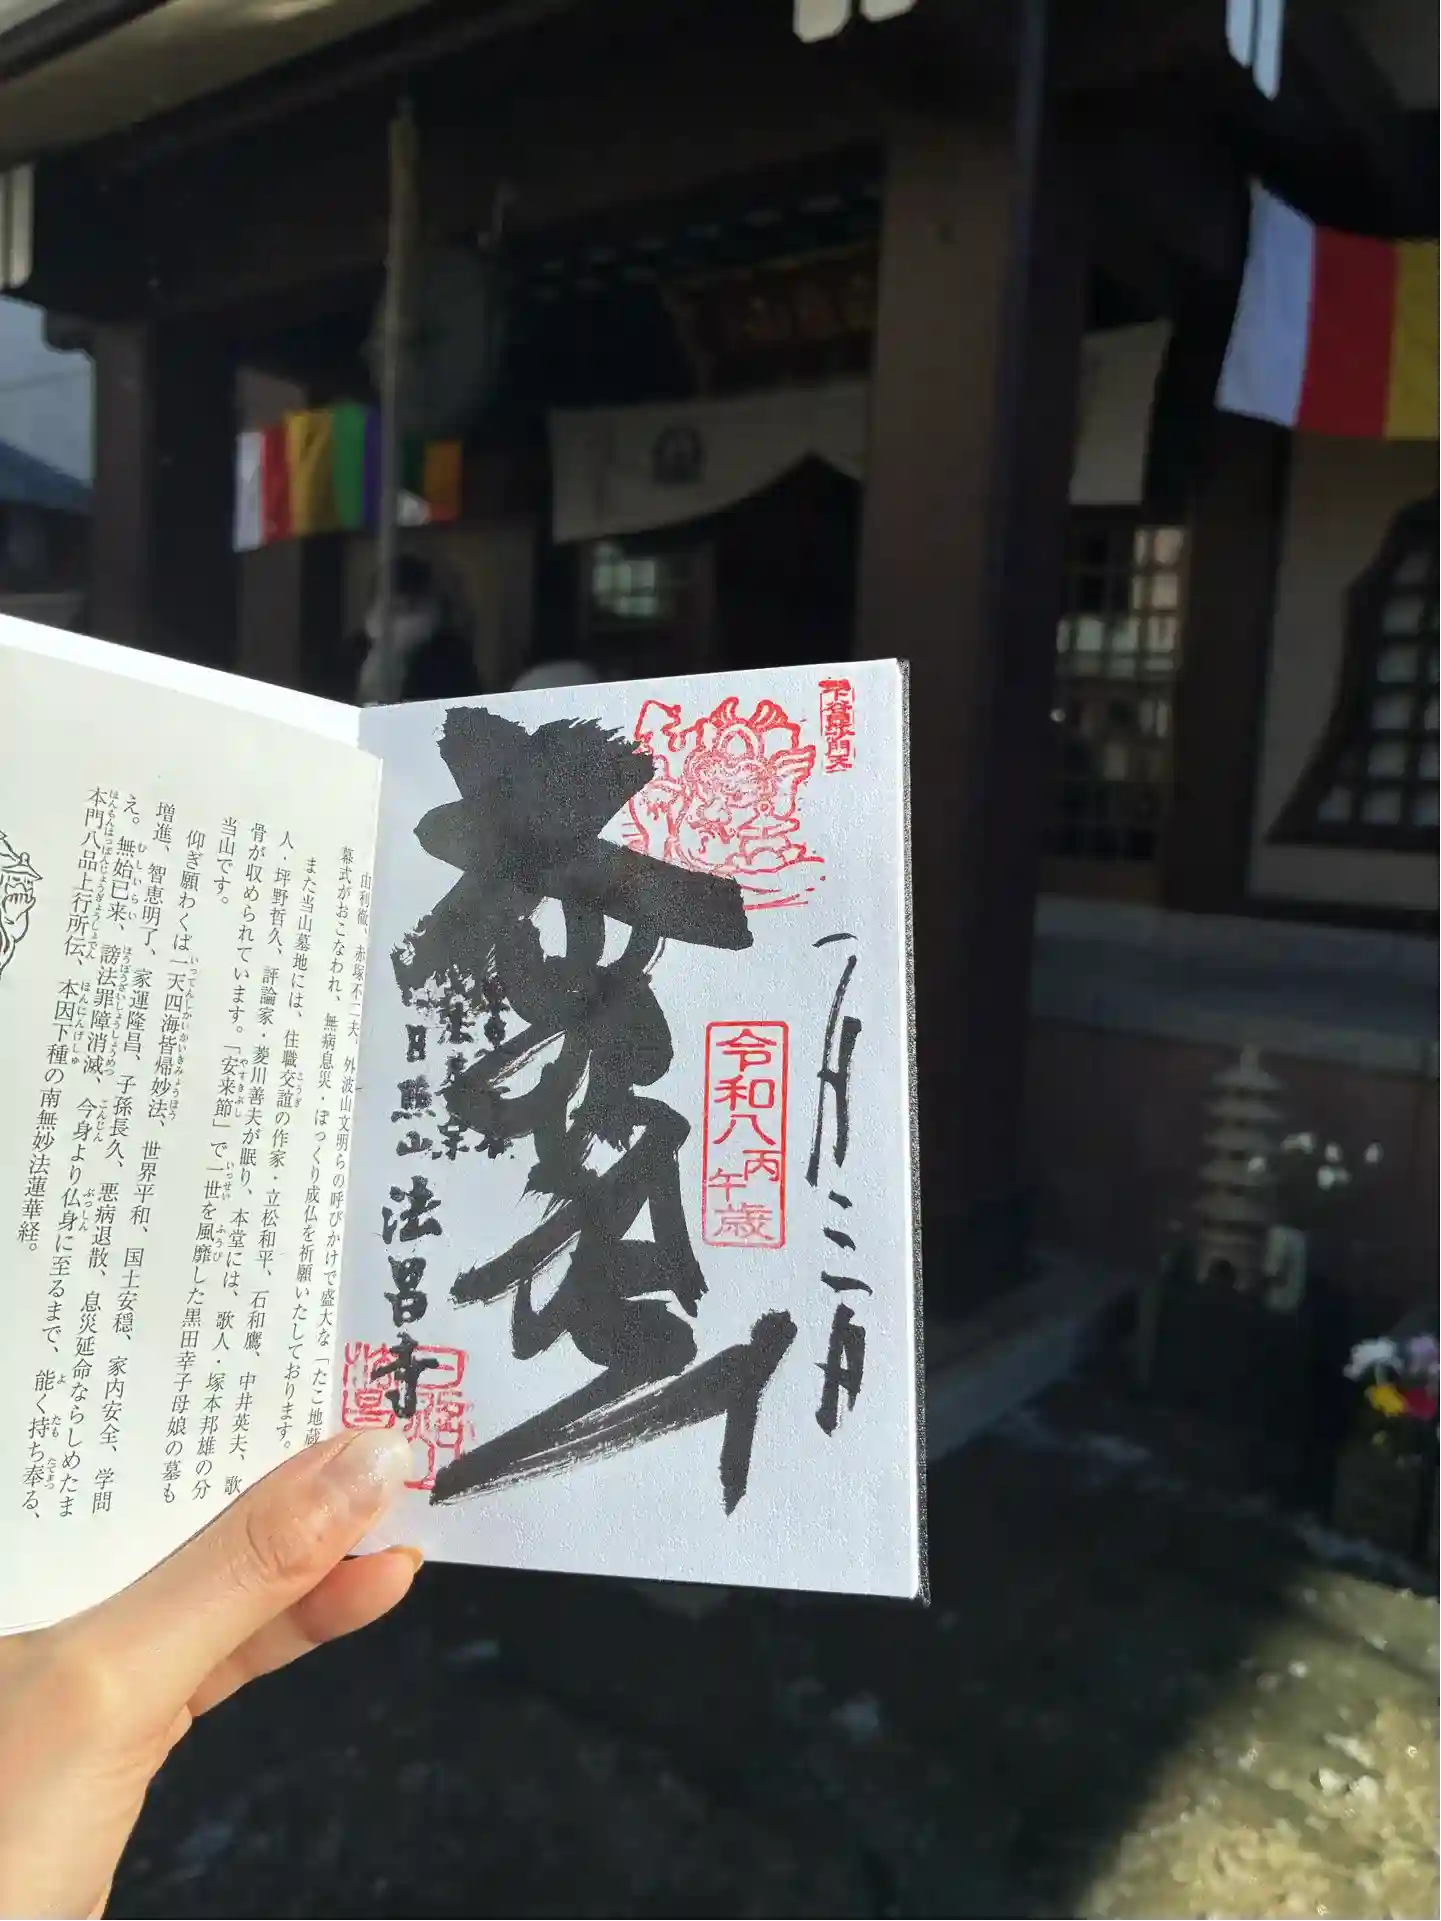 下谷毘沙門天
一月二二日
令和八丙午歳
日照山 法昌寺
由利徹、赤塚不二夫、外波山文明らの呼びかけで盛大な「たこ地蔵
幕式がおこなわれ、無病息災・ぽっくり成仏を祈願いたしております。
また当山墓地には、住職交誼の作家・立松和平、石和鷹、中井英夫、歌
人・坪野哲久、評論家・菱川善夫が眠り、本堂には、歌人・塚本邦雄の分
骨が収められています。「安来節」で一世を風靡した黒田幸子母娘の墓も
当山です。
仰ぎ願わくは一天四海皆帰妙法、世界平和、国土安穏、家内安全、学問
増進、智恵明了、家運隆昌、子孫長久、悪病退散、息災延命ならしめたま
え。無始已来、謗法罪障消滅、今身より仏身に至るまで、能く持ち奉る、
本門八品上行所伝、本因下種の南無妙法蓮華経。